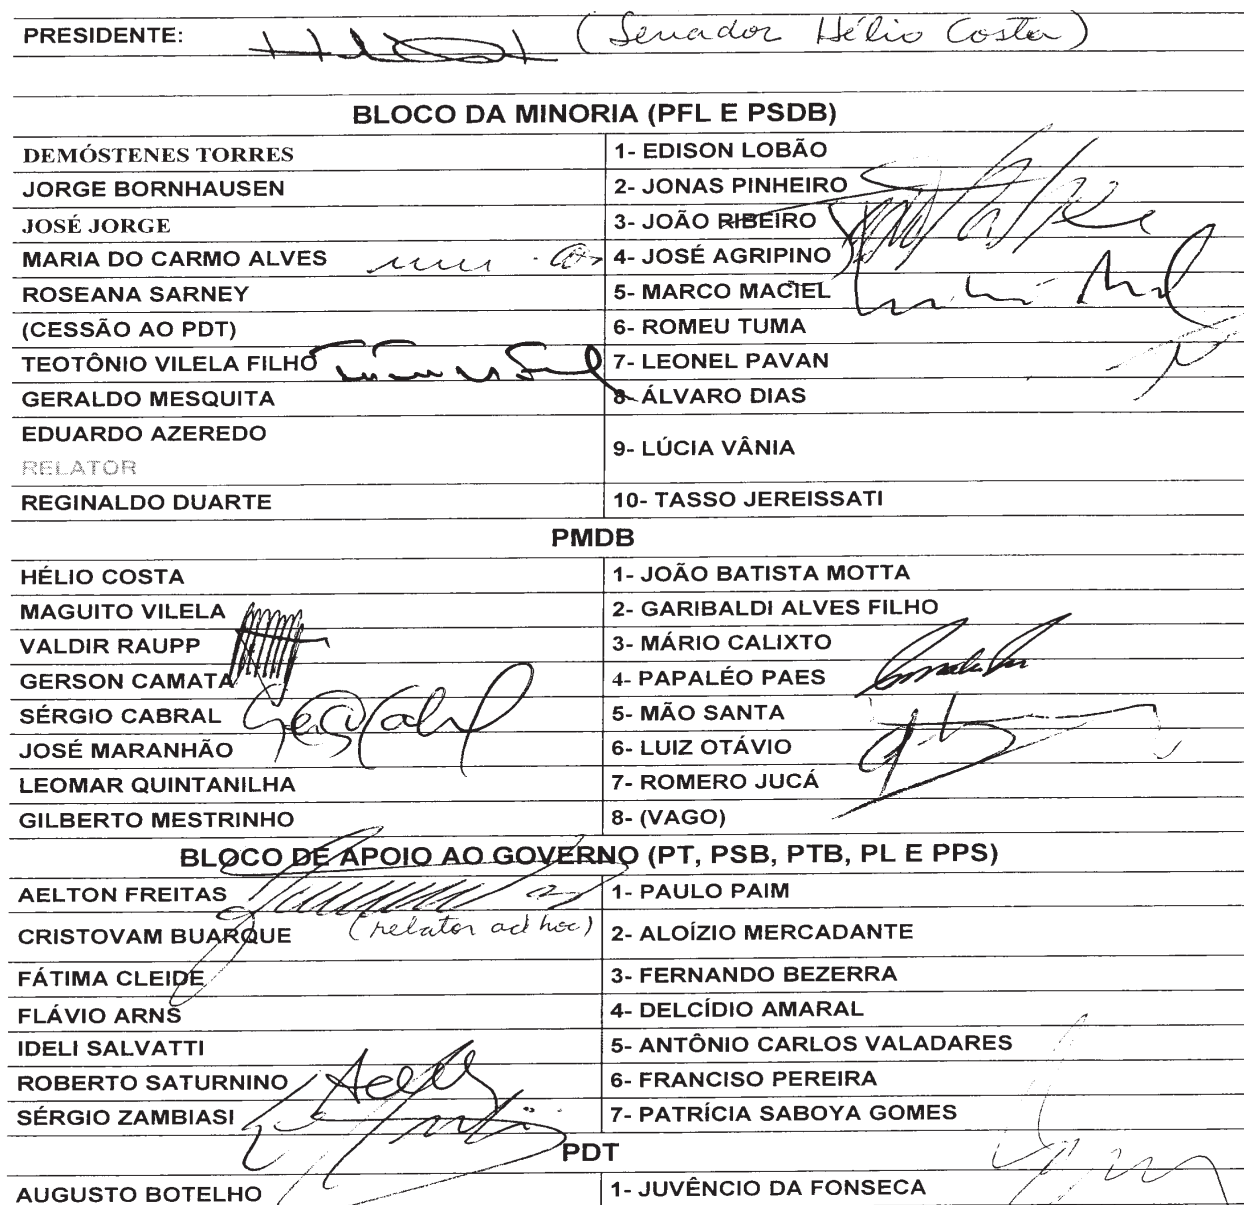 PRESIDENTE: (Senador Hélio Costa)
BLOCO DA MINORIA (PFL E PSDB)
DEMÓSTENES TORRES 1- EDISON LOBÃO
JORGE BORNHAUSEN 2- JONAS PINHEIRO
JOSÉ JORGE 3- JOÃO RIBEIRO
MARIA DO CARMO ALVES 4- JOSÉ AGRIPINO
ROSEANA SARNEY 5- MARCO MACIEL
(CESSÃO AO PDT) 6- ROMEU TUMA
TEOTÔNIO VILELA FILHO 7- LEONEL PAVAN
GERALDO MESQUITA 8- ÁLVARO DIAS
EDUARDO AZEREDO 9- LÚCIA VÂNIA
RELATOR
REGINALDO DUARTE 10- TASSO JEREISSATI
PMDB
HÉLIO COSTA 1- JOÃO BATISTA MOTTA
MAGUITO VILELA 2- GARIBALDI ALVES FILHO
VALDIR RAUPP 3- MÁRIO CALIXTO
GERSON CAMATA 4- PAPALÉO PAES
SÉRGIO CABRAL 5- MÃO SANTA
JOSÉ MARANHÃO 6- LUIZ OTÁVIO
LEOMAR QUINTANILHA 7- ROMERO JUCÁ
GILBERTO MESTRINHO 8- (VAGO)
BLOCO DE APOIO AO GOVERNO (PT, PSB, PTB, PL E PPS)
AELTON FREITAS 1- PAULO PAIM
(relator ad hoc)
CRISTOVAM BUARQUE 2- ALOÍZIO MERCADANTE
FÁTIMA CLEIDE 3- FERNANDO BEZERRA
FLÁVIO ARNS 4- DELCÍDIO AMARAL
IDELI SALVATTI 5- ANTÔNIO CARLOS VALADARES
ROBERTO SATURNINO 6- FRANCISO PEREIRA
SÉRGIO ZAMBIASI 7- PATRÍCIA SABOYA GOMES
PDT
AUGUSTO BOTELHO 1- JUVÊNCIO DA FONSECA